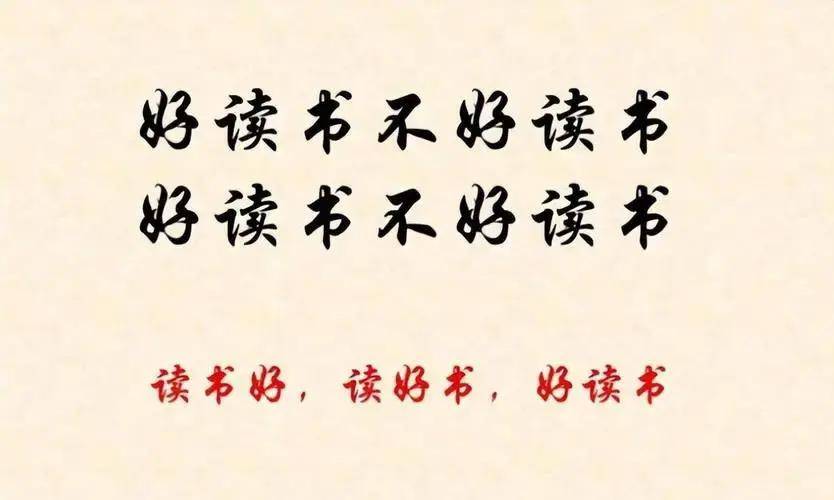 好读书不好读书
好读书不好读书
读书好，读好书，好读书